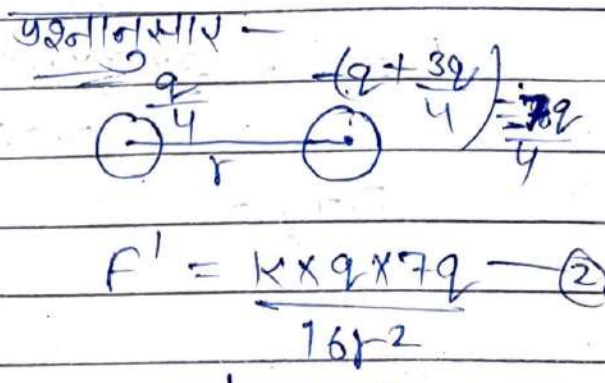 प्रश्नानुसार —
q/4 -(q + 3q/4) = -7q/4
r
F' = K×q×7q/16r² — ②